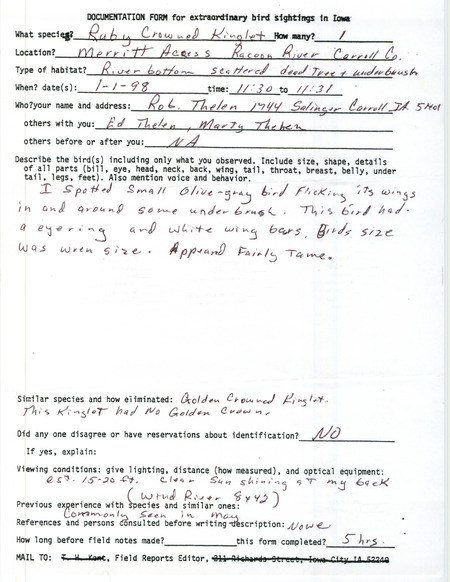 DOCUMENTATION FORM for extraordinary bird sightings in Iowa
What species? Ruby Crowned Kinglet How many? 1
Location? Merritt Access Racoon River Carroll Co.
Type of habitat? River bottom scattered dead Trees underbrush
When? date(s): 1-1-98 time: 11:30 to 11:31
Who? your name and address: Rob Thelen 1744 Salinger Carroll IA 51401
others with you: Ed Thelen, Marty Thelen
others before or after you: NA
Describe the bird(s) including only what you observed. Include size, shape, details
of all parts (bill, eye, head, neck, back, wing, tail, throat, breast, belly, under
tail, legs, feet). Also mention voice and behavior.
I Spotted Small Olive-gray bird Flicking its wings
in and around some underbrush. This bird had
a eyering and white wing bars, Birds size
was wren size. Appeard Fairly Tame.
Similar species and how eliminated: Golden Crowned Kinglet.
This Kinglet had No Golden Crown.
Did any one disagree or have reservations about identification? NO
If yes, explain:
Viewing conditions: give lighting, distance (how measured), and optical equipment:
est. 15-20 ft. Clear Sun shining at my back
(Wind River 8x42)
Previous experience with species and similar ones:
Commonly seen in May
References and persons consulted before writing description: None
How long before field notes made? this form completed? 5 hrs.
MAIL TO: T. H. Kent, Field Reports Editor, 211 Richards Street, Iowa City IA 52240